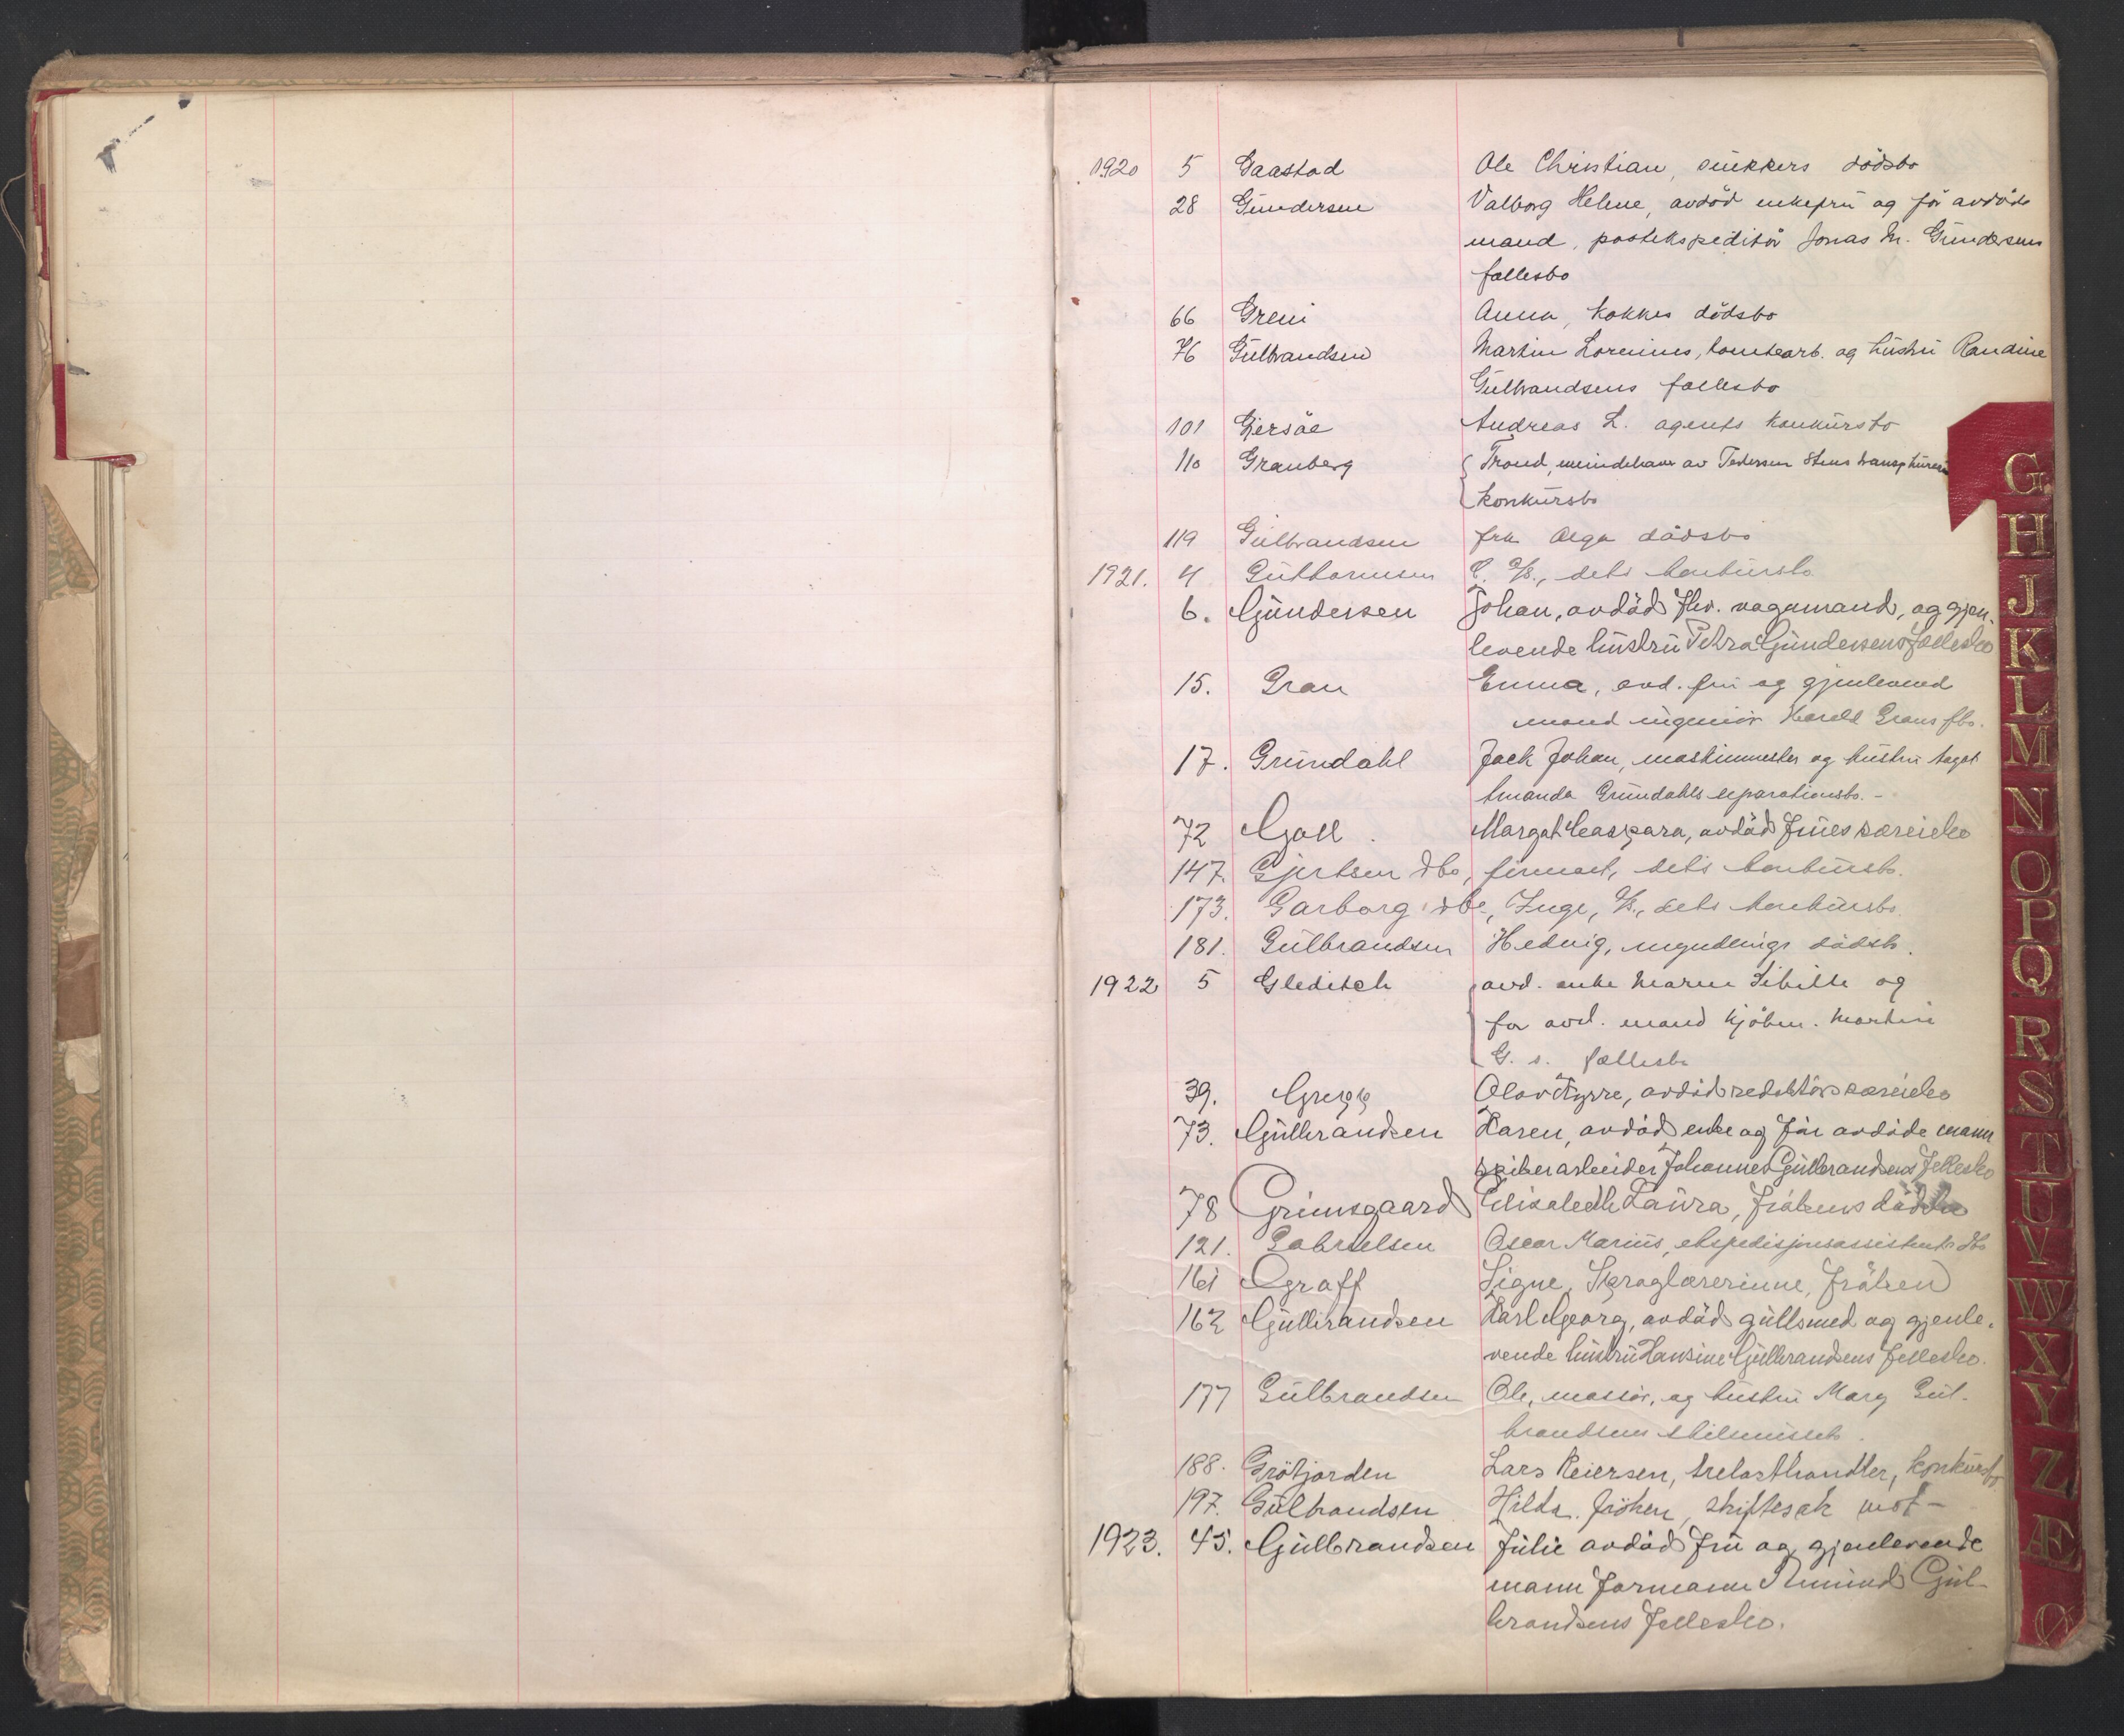 1920 5 Gaastad Ole Christian, snekkers dödsbo
28 Gundersen Valborg Helene, avdöd enkefru og för avdöde
mand, postekspeditör Jonas M. Gundersens
fællesbo
66 Greni Anna, kokkes dödsbo
76 Gulbrandsen Martin Lorentius, tomtearb. og hustru Randine
Gulbrandsens fællesbo
101 Gjersöe Andreas L. agents konkursbo
110 Granberg Trond, innehaver av Pedersen Stens
konkursbo
119 Gulbrandsen frk Olga dödsbo
1921. 4 Guttormsen C. A/S., dets konkursbo
6. Gundersen Johan, avdöd fhv. vognmand, og gjen-
levende hustru Petra Gundersens fællesbo
15. Gran Emma, avd. fru og gjenlevend
mand ingeniör Harald Grans fbo.
17. Grundahl Jack Johan, maskinmester og hustru Aagot
Amanda Grundahls separationsbo. -
72 Goll. Margot Caspara, avdöd frues særeiebo
147. Gjertsen & Co, firmaet, dets konkursbo.
173. Garborg & Co, Inge, A/S., dets konkursbo.
181. Gulbrandsen Hedvig, myndlings dödsbo.
1922 5 Gleditsch avd. enke Maren Sibille og
for avd. mand kjöbm. Martin
G. s. fællesbo
39. Gregg Olav Kyrre, avdöd redaktörs særeiebo
73. Gulbrandsen Karen, avdöd enke og för avdöde mann
spikerarbeider Johannes Gulbrandsens fellesbo
78 Grimsgaard Elisabeth Laura, frökens dödsbo
121. Gabrielsen Oscar Marius, ekspedisjonsassistents dbo
161 Graff Signe, Spraglærerinne, fröken
162 Gulbrandsen Karl Georg, avdöd gullsmed og gjenle-
vende hustru Hansine Gulbrandsens fellesbo.
177 Gulbrandsen Ole, massör, og hustru Mary Gul-
brandsens skilsmissebo.
188. Grötjorden Lars Reiersen, trelasthandler, konkursbo
197. Gulbrandsen Hilda, fröken, skiftesak mot -
1923. 45. Gulbrandsen Julie avdöd fru og gjenlevende
mann formann Amund Gul-
brandsens fellesbo.
G.
H
J
K
L
M
N
O
P
Q
R
S
T
U
V
W
X
Y
Z
Æ
Ø